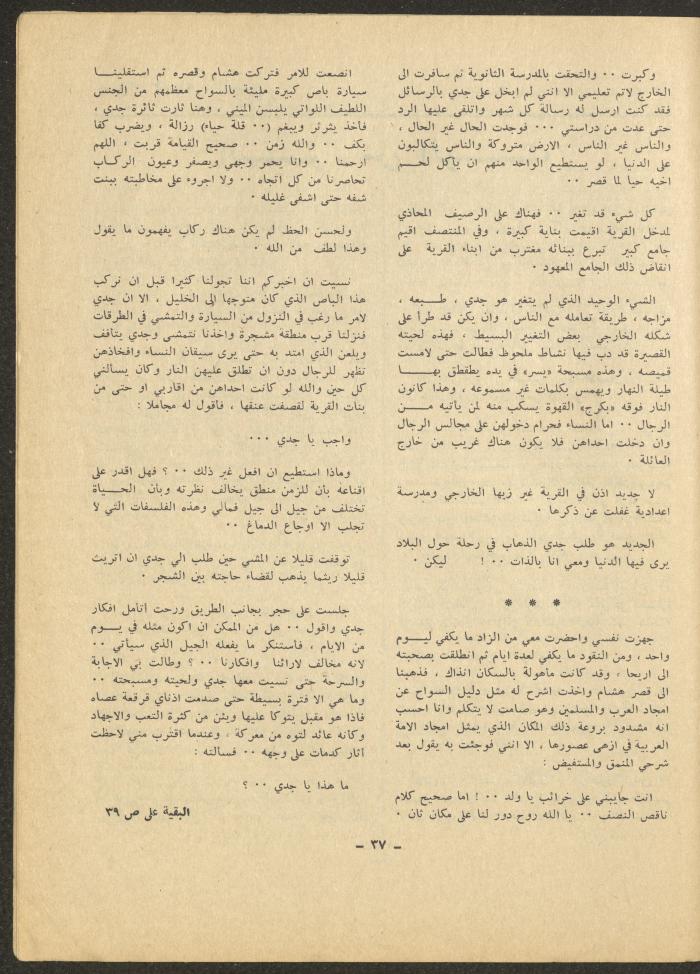 وكبرت ٠٠ والتحقت بالمدرسة الثانوية ثم سافرت الى
الخارج لاتم تعليمي الا انني لم ابخل على جدي بالرسائل
فقد كنت ارسل له رسالة كل شهر واتلقى عليها الرد
حتى عدت من دراستي ٠٠٠ فوجدت الحال غير الحال ،
والناس غير الناس ، الارض متروكة والناس يتكالبون
على الدنيا ، لو يستطيع الواحد منهم ان ياكل لحـــم
اخيه حيا لما قصر ٠٠
كل شيء قد تغير ٠٠ فهناك على الرصيف المحاذي
لمدخل القرية اقيمت بناية كبيرة ، وفي المنتصف اقيم
جامع كبير تبرع ببنائه مغترب من ابناء القرية على
انقاض ذلك الجامع المعهود ٠
الشيء الوحيد الذي لم يتغير هو جدي ، طـــبعه ،
مزاجه ، طريقة تعامله مع الناس ، وان يكن قد طرأ على
شكله الخارجي بعض التغيير البسيط ، فهذه لحيته
القصيرة قد دب فيها نشاط ملحوظ فطالت حتى لامست
قميصه ، وهذه مسبحة «يسر» في يده يطقطق بهـــا
طيلة النهار ويهمس بكلمات غير مسموعه ، وهذا كانون
النار فوقه «بكرج» القهوة يسكب منه لمن ياتيه مـــن
الرجال ٠٠ اما النساء فحرام دخولهن على مجالس الرجال
وان دخلت احداهن فلا يكون هناك غريب من خارج
العائلة ٠
لا جديد اذن في القرية غير زيها الخارجي ومدرسة
اعدادية غفلت عن ذكرها ٠
الجديد هو طلب جدي الذهاب في رحلة حول البلاد
يرى فيها الدنيا ومعي انا بالذات ٠٠ ! ليكن ٠
* * *
جهزت نفسي واحضرت معي من الزاد ما يكفي ليـــوم
واحد ، ومن النقود ما يكفي لعدة ايام ثم انطلقت بصحبته
الى اريحا ، وقد كانت مأهولة بالسكان انذاك ، فذهبنا
الى قصر هشام واخذت اشرح له مثل دليل السواح عن
امجاد العرب والمسلمين وهو صامت لا يتكلم وانا احسب
انه مشدود بروعة ذلك المكان الذي يمثل امجاد الامة
العربية في ازهى عصورها ، الا انني فوجئت به يقول بعد
شرحي المنمق والمستفيض :
انت جايبني على خرائب يا ولد ٠٠ ! اما صحيح كلام
ناقص النصف ٠٠ يا الله روح دور لنا على مكان ثان ٠
انصعت للامر فتركت هشام وقصره ثم استقلينـــا
سيارة باص كبيرة مليئة بالسواح معظمهم من الجنس
اللطيف اللواتي يلبسن الميني ، وهنا ثارت ثائرة جدي ،
فاخذ يثرثر ويبغم (٠٠ قلة حياء) رزالة ، ويضرب كفا
بكف ٠٠ والله زمن ٠٠ صحيح القيامة قربت ، اللهم
ارحمنا ٠٠ وانا يحمر وجهي ويصفر وعيون الركـاب
تحاصرنا من كل اتجاه ٠٠ ولا اجروء على مخاطبته ببنت
شفه حتى اشفى غليله ٠
ولحسن الحظ لم يكن هناك ركاب يفهمون ما يقول
وهذا لطف من الله ٠
نسيت ان اخبركم اننا تجولنا كثيرا قبل ان نركب
هذا الباص الذي كان متوجها الى الخليل ، الا ان جدي
لامر ما رغب في النزول من السيارة والتمشي في الطرقات
فنزلنا قرب منطقة مشجرة واخذنا نتمشى وجدي يتأفف
ويلعن الذي امتد به حتى يرى سيقان النساء وافخاذهن
تظهر للرجال دون ان تطلق عليهن النار وكان يسالني
كل حين والله لو كانت احداهن من اقاربي او حتى من
بنات القرية لقصفت عنقها ، فاقول له مجاملا :
واجب يا جدي ٠٠٠
وماذا استطيع ان افعل غير ذلك ٠٠ ؟ فهل اقدر على
اقناعه بأن للزمن منطق يخالف نظرته وبأن الحـــياة
تختلف من جيل الى جيل فمالي وهذه الفلسفات التي لا
تجلب الا اوجاع الدماغ ٠٠
توقفت قليلا عن المشي حين طلب الي جدي ان اتريث
قليلا ريثما يذهب لقضاء حاجته بين الشجر ٠
جلست على حجر بجانب الطريق ورحت اتأمل افكار
جدي واقول ٠٠ هل من الممكن ان اكون مثله في يـــوم
من الايام ، فاستنكر ما يفعله الجيل الذي سيأتي ٠٠
لانه مخالف لارائنا وافكارنا ٠٠ ؟ وطالت بي الاجابة
والسرحة حتى نسيت معها جدي ولحيته ومسبحته ٠٠
وما هي الا فترة بسيطة حتى صدمت اذناي قرقعة عصاه
فاذا هو مقبل يتوكأ عليها ويئن من كثرة التعب والاجهاد
وكأنه عائد لتوه من معركة ، وعندما اقترب مني لاحظت
آثار كدمات على وجهه ٠٠ فسالته :
ما هذا يا جدي ٠٠ ؟
البقية على ص ٣٩
– ٣٧ –